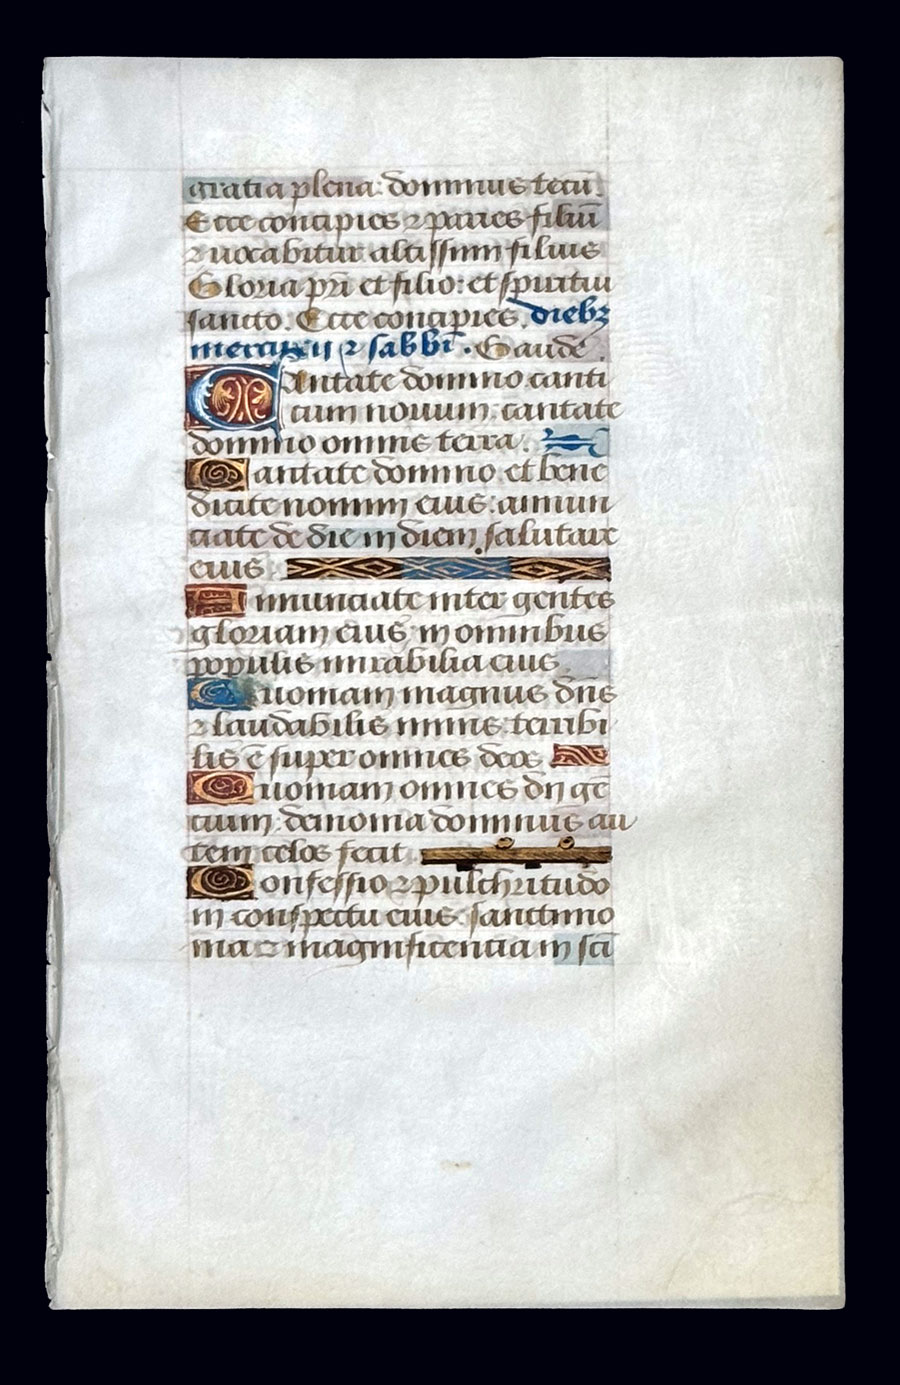 gratia plena: dominus tecū.
Ecce concipies ⁊ paries filiū
⁊ vocabitur altissimi filius
Gloria pr̄i et filio: et spiritui
sancto. Ecce concipies. diebꝫ
mercurii ⁊ sabbī. Gaude.
Cantate domino canti
cum novum: cantate
domino omnis terra.
Cantate domino et bene
dicite nomini eius: annun
ciate de die in diem salutare
eius
Annunciate inter gentes
gloriam eius in omnibus
populis mirabilia eius.
Quoniam magnus dn̄s
⁊ laudabilis nimis: terribi
lis ē super omnes deos
Quoniam omnes dij gē
cium: demonia dominus au
tem celos fecit.
Confessio ⁊ pulchritudo
in conspectu eius: sanctimo
nia ⁊ magnificencia in scī